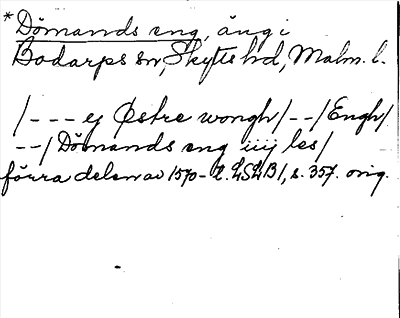 *Dömands eng, äng i
Bodarps sn, Skytts hd, Malm. l.
/--- ej Østre wongh/--/Engh/
--/Dömands eng iiij les/
förra delen av 1570-t. LSLB1, s. 357. orig.